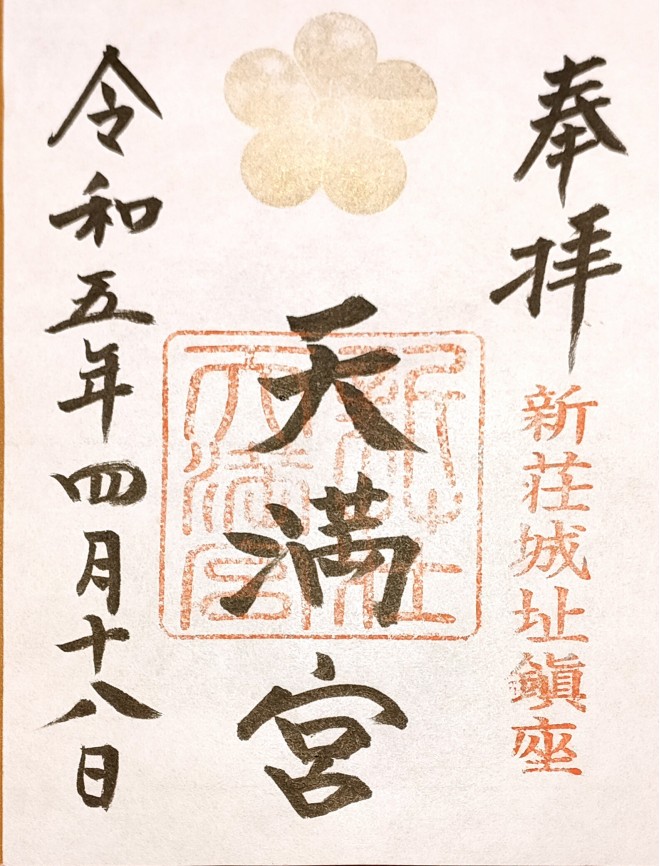 奉拝
新荘城址鎮座
天満宮
令和五年四月十八日